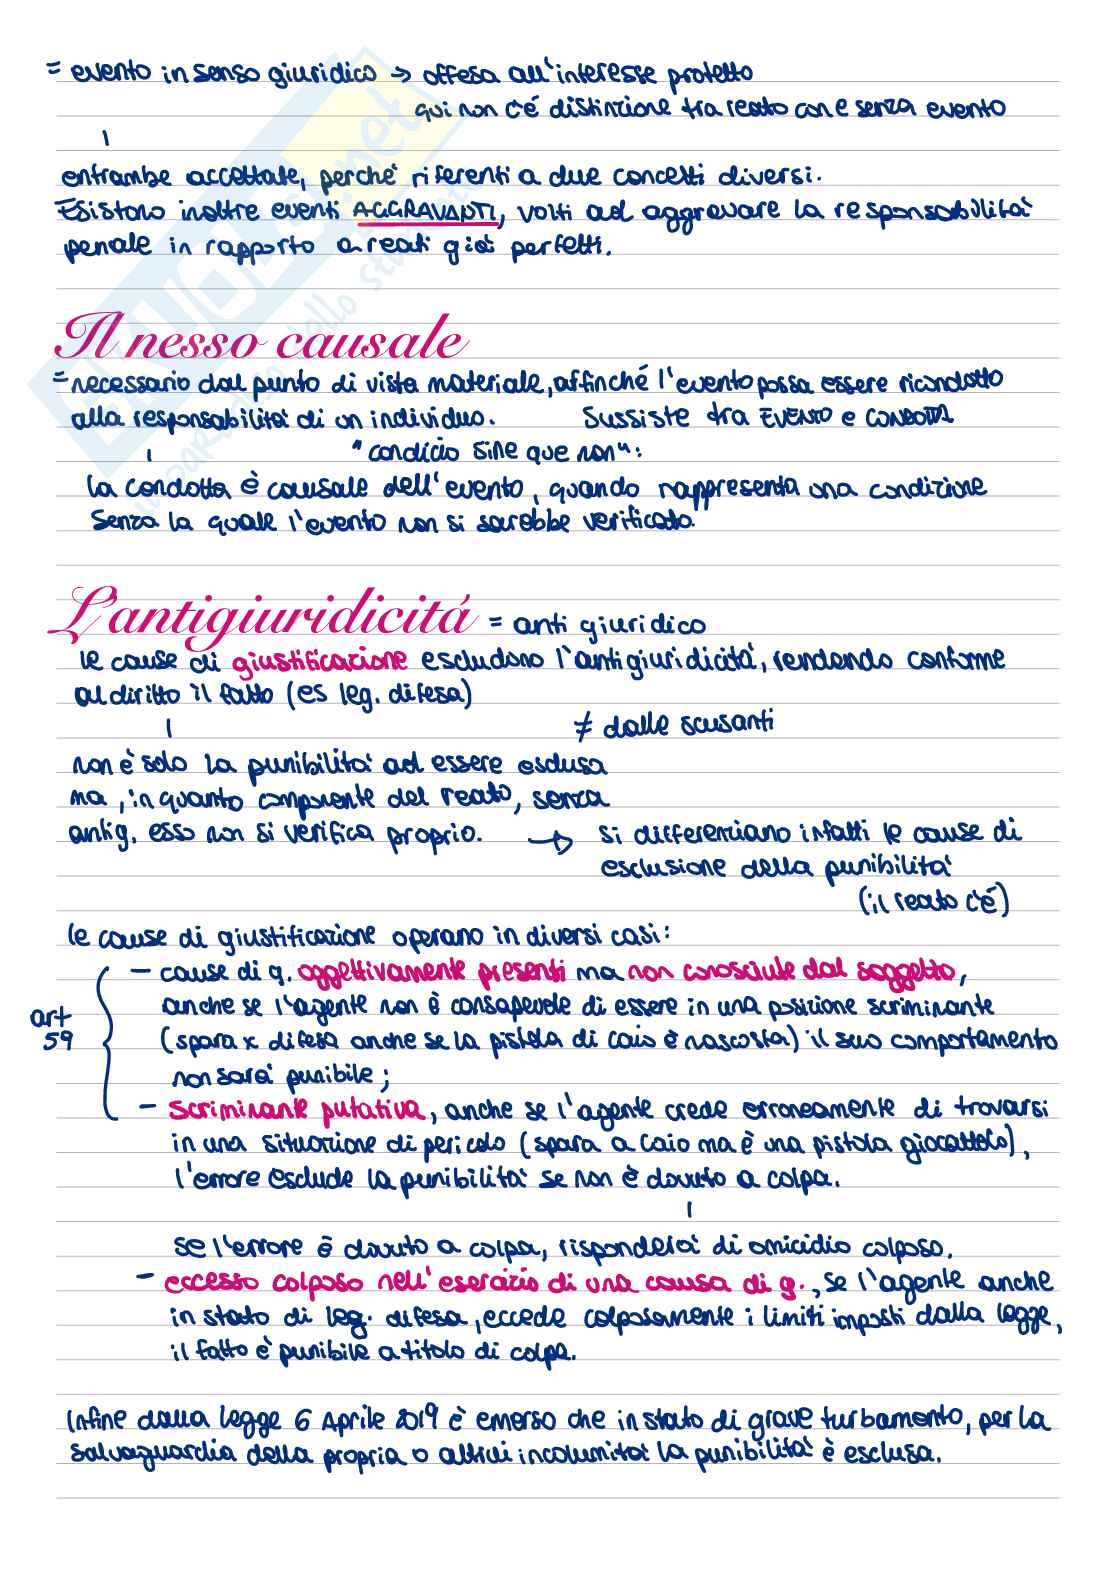 = evento in senso giuridico → offesa all'interesse protetto
qui non c'é distinzione tra reato con e senza evento
entrambe accettate, perche' riferenti a due concetti diversi.
Esistono inoltre eventi AGGRAVANTI, volti ad aggravare la responsabilità
penale in rapporto a reati già perfetti.
Il nesso causale
= necessario dal punto di vista materiale, affinché l'evento possa essere ricondotto
alla responsabilità di un individuo. Sussiste tra EVENTO e CONDOTTA
"condicio sine que non":
la condotta è causale dell'evento, quando rappresenta una condizione
senza la quale l'evento non si sarebbe verificato.
L'antigiuridicitá = anti giuridico
le cause di giustificazione escludono l'antigiuridicità, rendendo conforme
al diritto il fatto (es leg. difesa)
≠ dalle scusanti
non è solo la punibilità ad essere esclusa
ma, in quanto componente del reato, senza
antig. esso non si verifica proprio. → si differenziano infatti le cause di
esclusione della punibilità
(il reato c'é)
le cause di giustificazione operano in diversi casi:
- cause di g. oggettivamente presenti ma non conosciute dal soggetto,
anche se l'agente non è consapevole di essere in una posizione scriminante
art 59
(spara x difesa anche se la pistola di caio è nascosta) il suo comportamento
non sarà punibile;
- scriminante putativa, anche se l'agente crede erroneamente di trovarsi
in una situazione di pericolo (spara a Caio ma è una pistola giocattolo),
l'errore esclude la punibilità se non è dovuto a colpa.
se l'errore è dovuto a colpa, risponderà di omicidio colposo.
- eccesso colposo nell'esercizio di una causa di g., se l'agente anche
in stato di leg. difesa, eccede colposamente i limiti imposti dalla legge,
il fatto è punibile a titolo di colpa.
Infine dalla legge 6 Aprile 2019 è emerso che in stato di grave turbamento, per la
salvaguardia della propria o altrui incolumità la punibilità è esclusa.